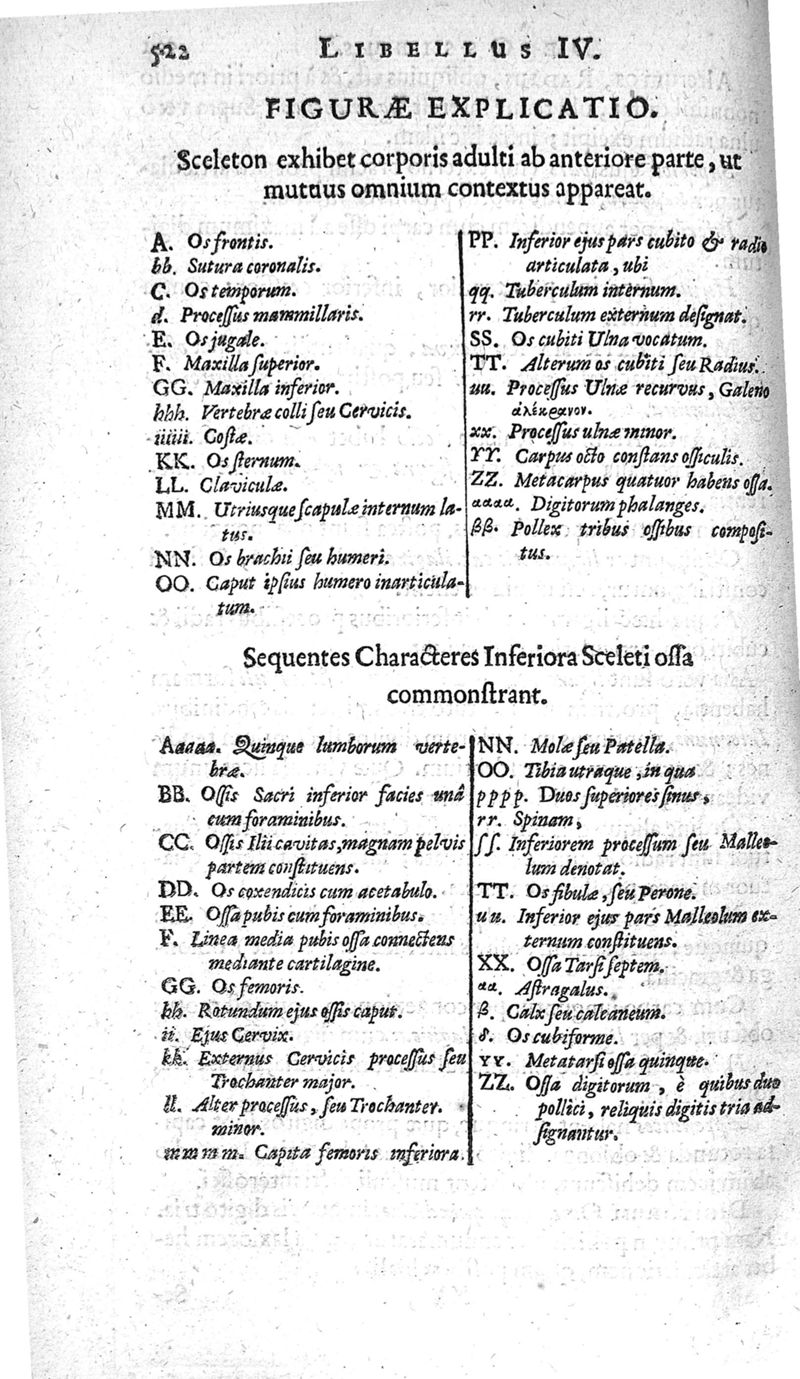 522 LIBELLUS IV.
FIGURÆ EXPLICATIO.
Sceleton exhibet corporis adulti ab anteriore parte, ut
mutuus omnium contextus appareat.
A. Os frontis.
bb. Sutura coronalis.
C. Os temporum.
d. Proceſſus mammillaris.
E. Os jugale.
F. Maxilla ſuperior.
GG. Maxilla inferior.
hhh. Vertebræ colli ſeu Cervicis.
iiiii. Coſtæ.
KK. Os ſternum.
LL. Claviculæ.
MM. Utriusque ſcapulæ internum la-
tus.
NN. Os brachii ſeu humeri.
OO. Caput ipſius humero inarticula-
tum.
PP. Inferior ejus pars cubito & radio
articulata, ubi
qq. Tuberculum internum.
rr. Tuberculum externum deſignat.
SS. Os cubiti Ulna vocatum.
TT. Alterum os cubiti ſeu Radius.
uu. Proceſſus Ulnæ recurvus, Galeno
ἀλέκρανον.
xx. Proceſſus ulnæ minor.
YY. Carpus octo conſtans oſſiculis.
ZZ. Metacarpus quatuor habens oſſa.
αααα. Digitorum phalanges.
ββ. Pollex tribus oſſibus compoſi-
tus.
Sequentes Characteres Inferiora Sceleti oſſa
commonſtrant.
Aaaaa. Quinque lumborum verte-
bræ.
BB. Oſſis Sacri inferior facies unâ
cum foraminibus.
CC. Oſſis Ilii cavitas, magnam pelvis
partem conſtituens.
DD. Os coxendicis cum acetabulo.
EE. Oſſa pubis cum foraminibus.
F. Linea media pubis oſſa connectens
mediante cartilagine.
GG. Os femoris.
hh. Rotundum ejus oſſis caput.
ii. Ejus Cervix.
kk. Externus Cervicis proceſſus ſeu
Trochanter major.
ll. Alter proceſſus, ſeu Trochanter.
minor.
mmmm. Capita femoris inferiora.
NN. Molæ ſeu Patella.
OO. Tibia utraque, in qua
pppp. Duos ſuperiores ſinus,
rr. Spinam,
ſſ. Inferiorem proceſſum ſeu Malleo-
lum denotat.
TT. Os fibulæ, ſeu Perone.
uu. Inferior ejus pars Malleolum ex-
ternum conſtituens.
XX. Oſſa Tarſi ſeptem.
αα. Aſtragalus.
β. Calx ſeu calcaneum.
δ. Os cubiforme.
YY. Metatarſi oſſa quinque.
ZZ. Oſſa digitorum, è quibus duo
pollici, reliquis digitis tria ad-
ſignantur.